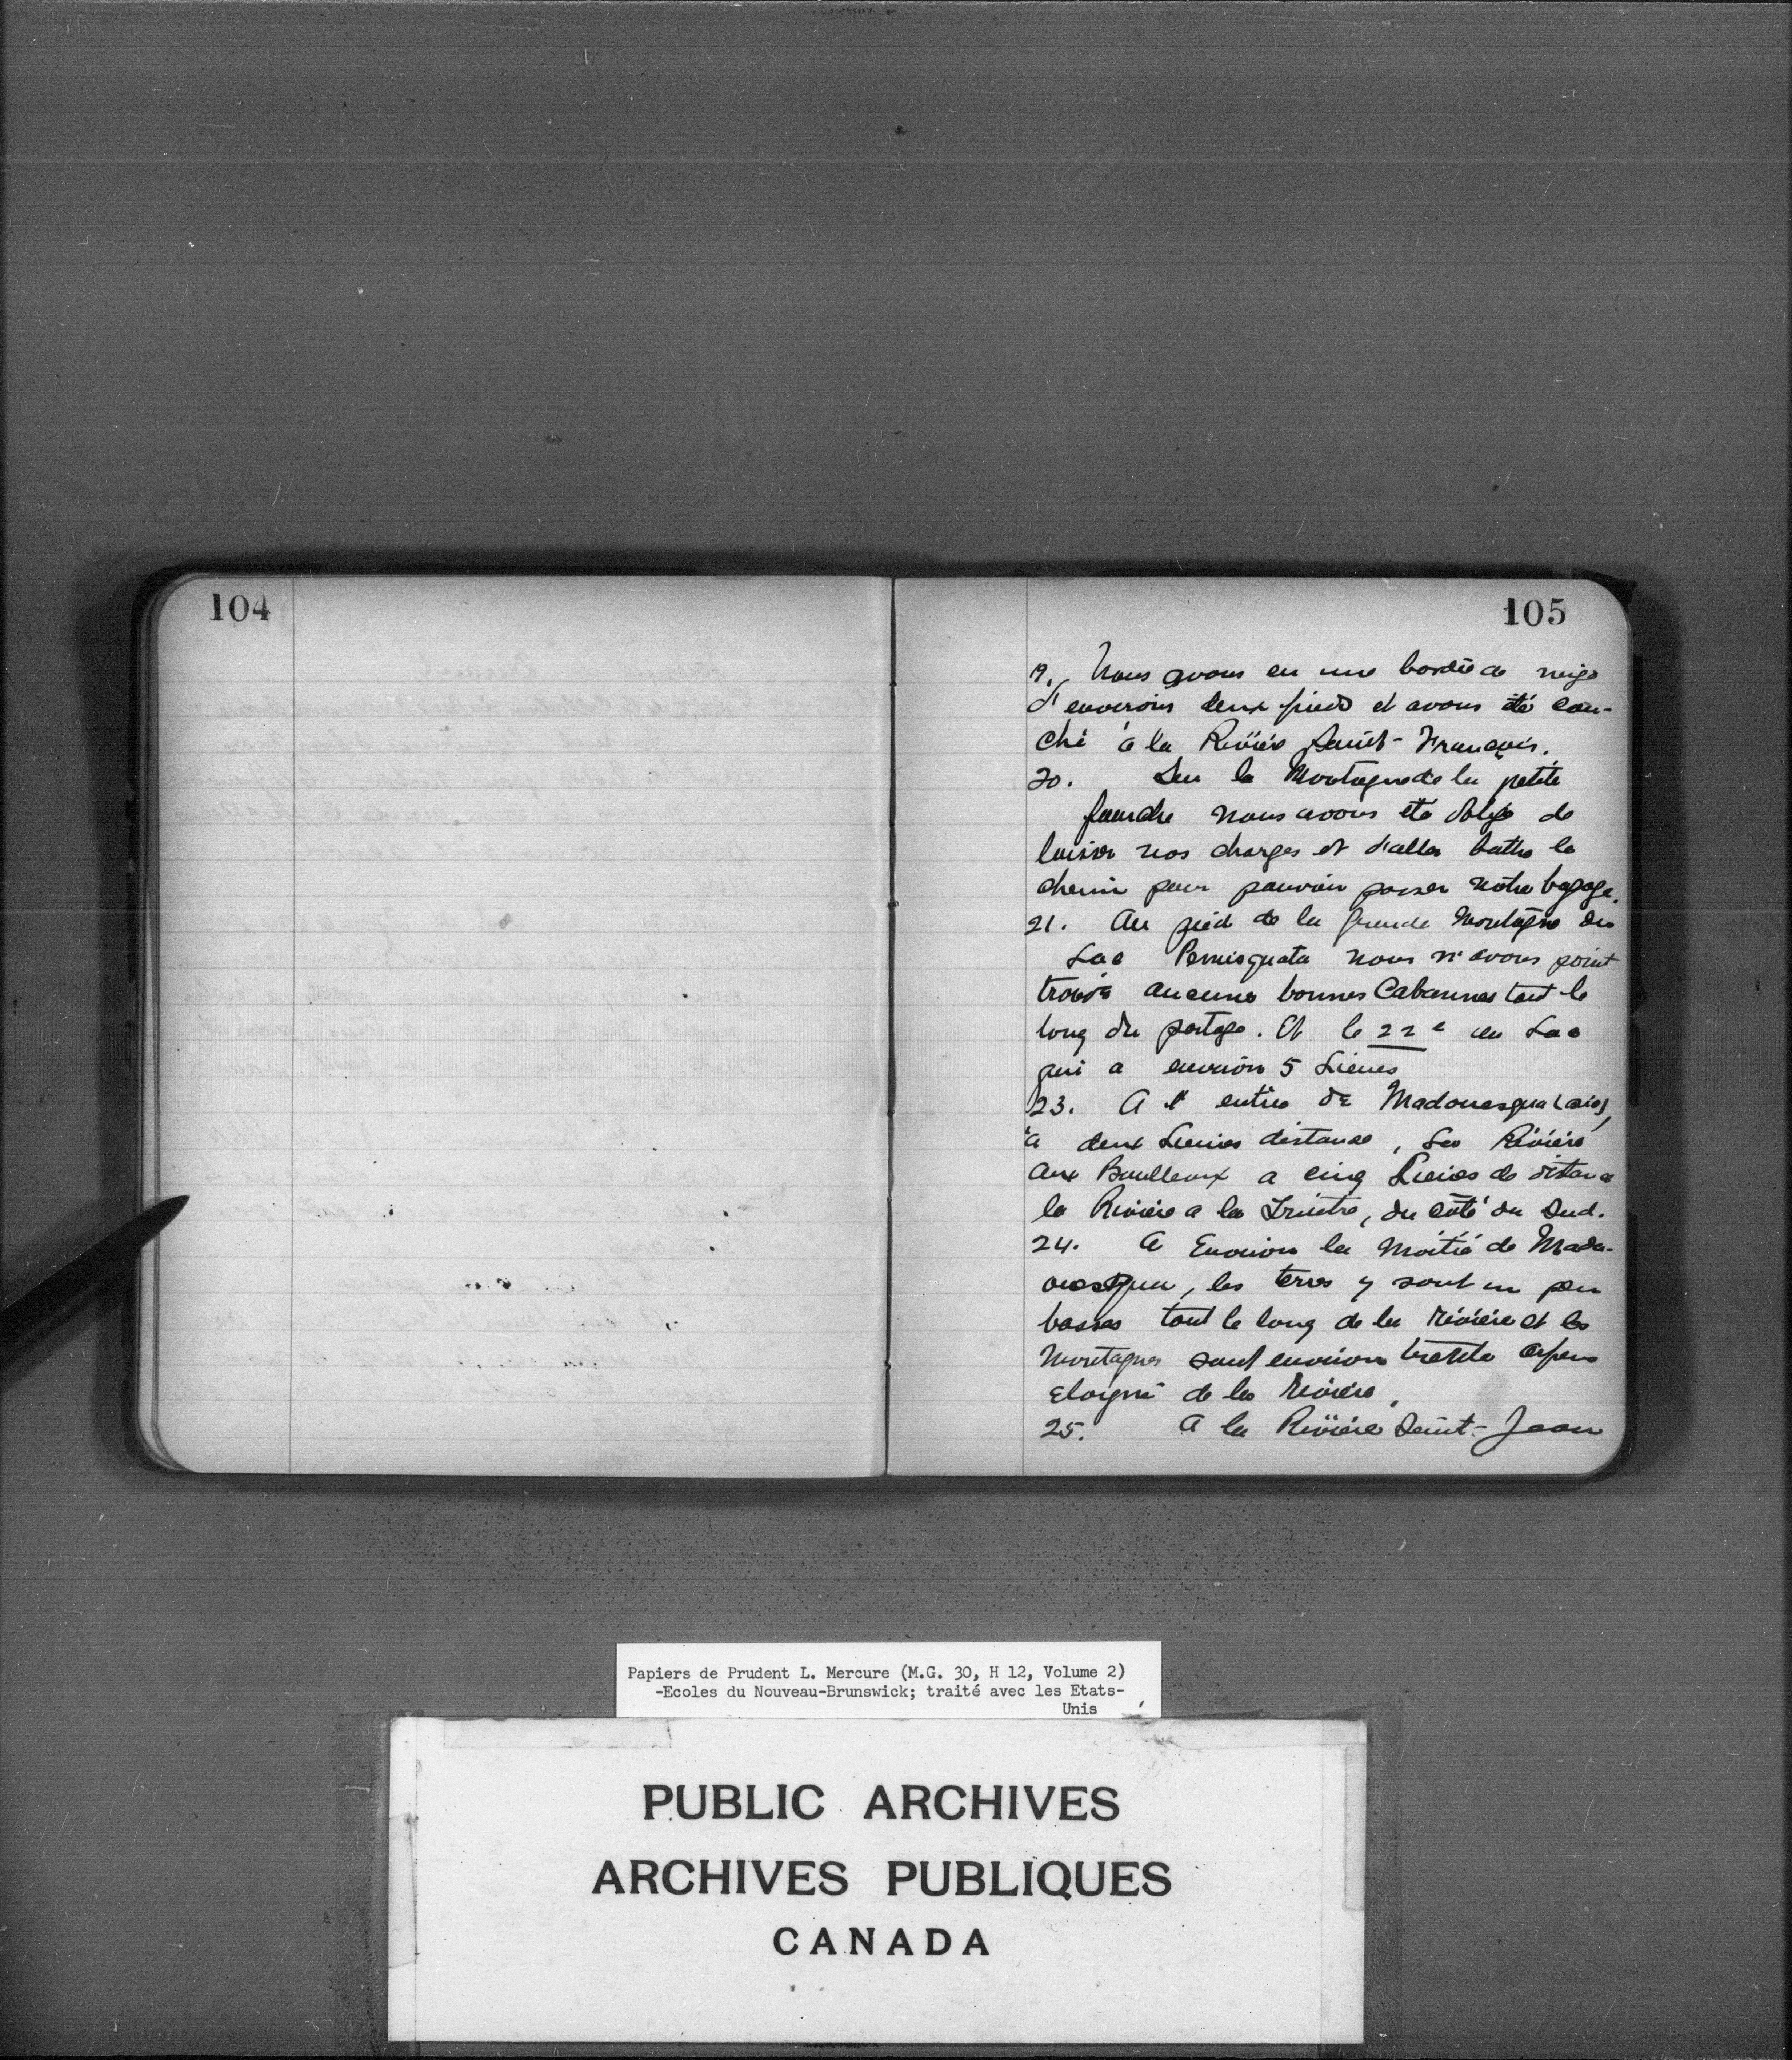 104
105
19. Nous avons eu une bordée de neige
d'environs deux pieds et avons été cou-
ché à la Rivière Saint-François.
20. Sur la Montagne de la petite
fourche nous avons été obligé de
laisser nos charges et d'aller battre le
chemin pour pouvoir passer notre bagage.
21. Au pied de la grande Montagne du
Lac Pemisquata nous n'avons point
trouvé aucunes bonnes Cabannes tout le
long du portage. Et le 22e au Lac
qui a environ 5 Lieues
23. A l'entrée de Madouesqua (sic),
à deux Lieues distance, La Rivière
aux Boulleaux a cinq Lieues de distance
la Rivière a la Truitre, du côté du Sud.
24. A Environ la Moitié de Mada-
ouesqua, les terres y sont un peu
basses tout le long de la rivière et les
Montagnes sont environ trente Arpens
Eloigné de la Rivière.
25. A la Rivière Saint-Jean
Papiers de Prudent L. Mercure (M.G. 30, H 12, Volume 2)
-Ecoles du Nouveau-Brunswick; traité avec les Etats-
Unis
PUBLIC ARCHIVES
ARCHIVES PUBLIQUES
CANADA